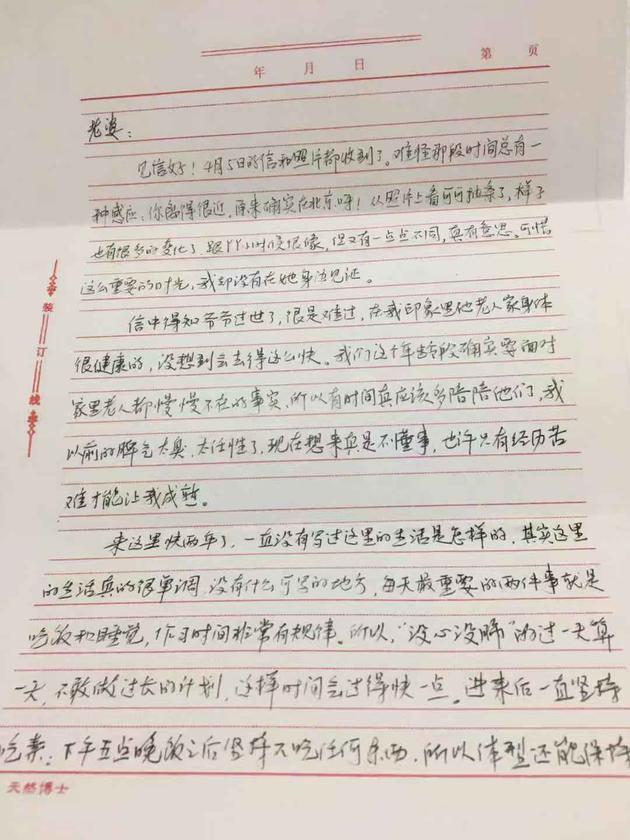 第 页
年 月 日
老婆：
见信好！4月5日的信和照片都收到了。难怪那段时间总有一
种感应：你离得很近，原来确实在北京呀！从照片上看可可抽条了，样子
也有很多的变化了，跟YY小时候很像，但又有一点点不同，真有意思。可惜
这么重要的时光，我却没有在她身边见证。
信中得知爷爷过世了，很是难过，在我印象里他老人家身体
很健康的，没想到会走得这么快。我们这个年龄段确实要面对
家里老人都慢慢不在的事实，所以有时间真应该多陪陪他们，我
以前的脾气太臭、太任性了，现在想来真是不懂事，也许只有经历苦
难才能让我成熟。
来这里快两年了，一直没有写过这里的生活是怎样的，其实这里
的生活真的很单调，没有什么可写的地方，每天最重要的两件事就是
吃饭和睡觉，作习时间非常有规律。所以，“没心没肺”的过一天算
一天，不敢做过长的计划，这样时间会过得快一点。进来后一直坚持
吃素，下午五点晚饭之后坚持不吃任何东西，所以体型还能保持
装订线
天然博士